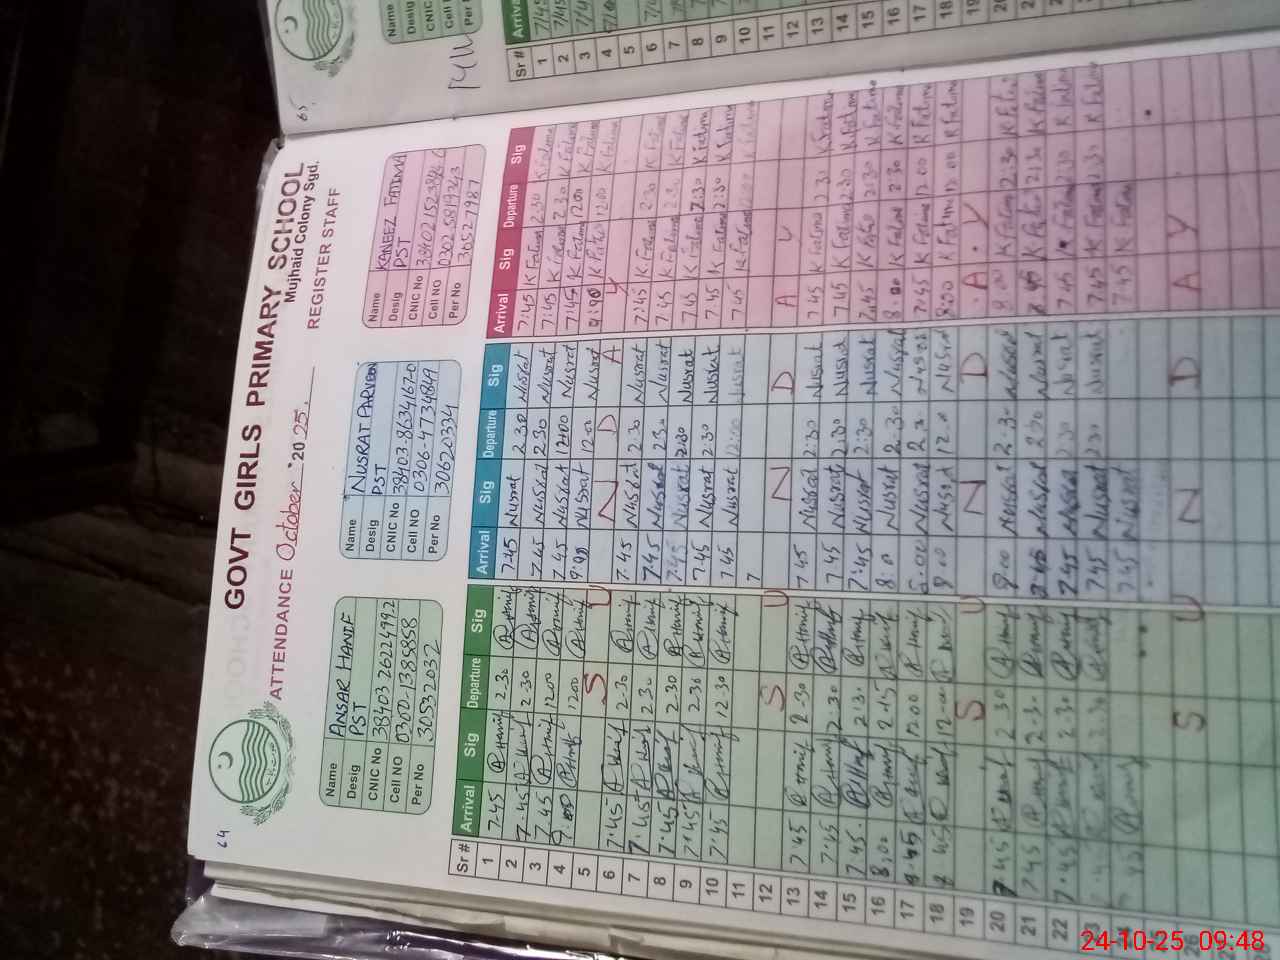 64
GOVT GIRLS PRIMARY SCHOOL
Mujhaid Colony Sgd.
ATTENDANCE October 2025. REGISTER STAFF
Name ANSAR HANIF
Desig PST
CNIC No 38403 2622499.2
Cell NO 0300-1385858
Per No 30532032
Name NUSRAT PARVEEN
Desig PST
CNIC No 38403-8634167-0
Cell NO 0306-4734849
Per No 30620334
Name KANEEZ FATIMA
Desig PST
CNIC No
Cell NO 0302 5819343
Per No 30527987
Sr # Arrival Sig Departure Sig Arrival Sig Departure Sig Arrival Sig Departure Sig
1 7.45 A Hanif 2.30 A Hanif 7.45 Nusrat 2.30 Nusrat 7:45 K Fatima 2.30 K Fatima
2 7.45 A Hanif 2.30 A Hanif 7.45 Nusrat 2.30 Nusrat 7:45 K Fatima 2.30 K Fatima
3 7.45 A Hanif 12.00 A Hanif 7.45 Nusrat 12.00 Nusrat 7:45 K Fatima 12.00 K Fatima
4 A Hanif 12.00 A Hanif Nusrat 12.00 Nusrat K Fatima 12.00 K Fatima
5 S U N D A Y
6 7.45 A Hanif 2.30 A Hanif 7.45 Nusrat 2.30 Nusrat 7:45 K Fatima 2.30 K Fatima
7 7.45 A Hanif 2.30 A Hanif 7.45 Nusrat 2.30 Nusrat 7:45 K Fatima 2.30 K Fatima
8 7.45 A Hanif 2.30 A Hanif 7.45 Nusrat 2:30 Nusrat 7.45 K Fatima 2:30 K Fatima
9 7.45 A Hanif 2.30 A Hanif 7.45 Nusrat 2.30 Nusrat 7.45 K Fatima 2:30 K Fatima
10 7.45 A Hanif 12.30 A Hanif 7.45 Nusrat 12:00 Nusrat 7.45 K Fatima 12:00 K Fatima
11 7
12 S U N D A Y
13 7.45 A Hanif 2.30 A Hanif 7.45 Nusrat 2:30 Nusrat 7.45 K Fatima 2.30 K Fatima
14 7.45 A Hanif 2.30 A Hanif 7.45 Nusrat 2:30 Nusrat 7.45 K Fatima 2.30 K Fatima
15 7.45 A Hanif 2.30 A Hanif 7.45 Nusrat 2:30 Nusrat 7.45 K Fatima 2:30 K Fatima
16 8:00 A Hanif 2.45 A Hanif 8.0 Nusrat 2.30 Nusrat K Fatima 2.30 K Fatima
17 A Hanif 12.00 A Hanif Nusrat Nusrat 7.45 K Fatima 12.00 K Fatima
18 12.00 8.00 Nusrat 12.0 Nusrat 8:00 K Fatima 12.00 K Fatima
19 S U N D A Y
20 7.45 2.30 A Hanif 8.00 Nusrat 2.30 Nusrat 8.00 K Fatima 2:30 K Fatima
21 7.45 A Hanif 2.30 A Hanif Nusrat 2.30 Nusrat K Fatima 2.30 K Fatima
22 7.45 A Hanif 2.30 A Hanif 7.45 Nusrat 2.30 Nusrat 7.45 K Fatima 2.30 K Fatima
2.30 A Hanif 7.45 Nusrat 2.30 Nusrat 7.45 K Fatima 2.30 K Fatima
A Hanif 7.45 Nusrat 7.45 K Fatima
S U N D A Y
65
Name
Desig
CNIC
Cell
Per
Sr # Arrival
1 7:45
2 7:45
3
4
5
6
7
8
9
10
11
12
13
14
15
16
17
18
19
20
24-10-25 09:48